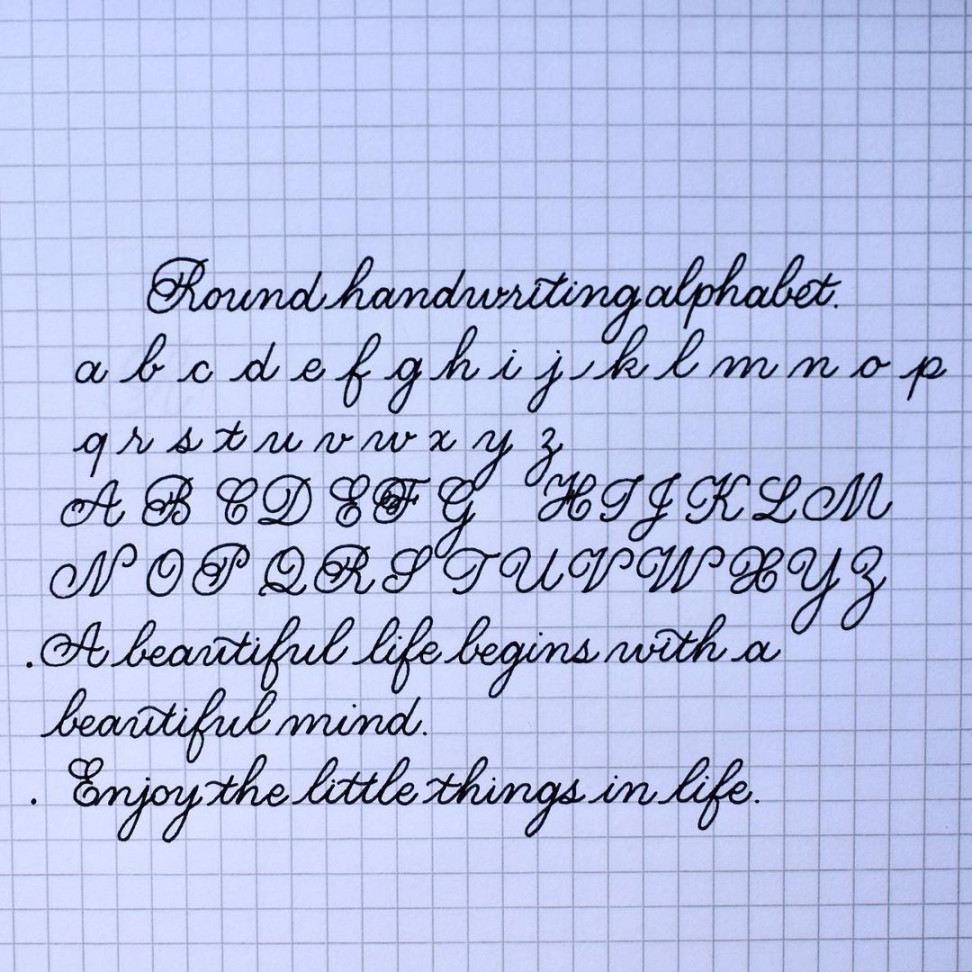 Round handwriting alphabet.
a b c d e f g h i j k l m n o p
q r s t u v w x y z
A B C D E F G H I J K L M
N O P Q R S T U V W X Y Z
. A beautiful life begins with a
beautiful mind.
. Enjoy the little things in life.